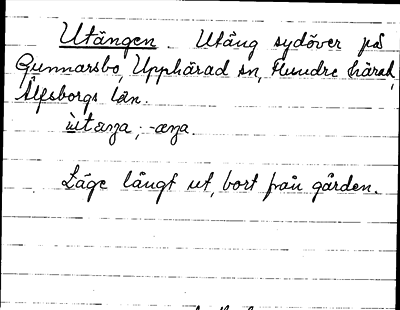 Utängen. Utäng sydöver på
Gunnarsbo, Upphärad sn, Flundre härad,
Älfsborgs län.
ùtæŋa, -æŋa.
Läge långt ut, bort från gården.